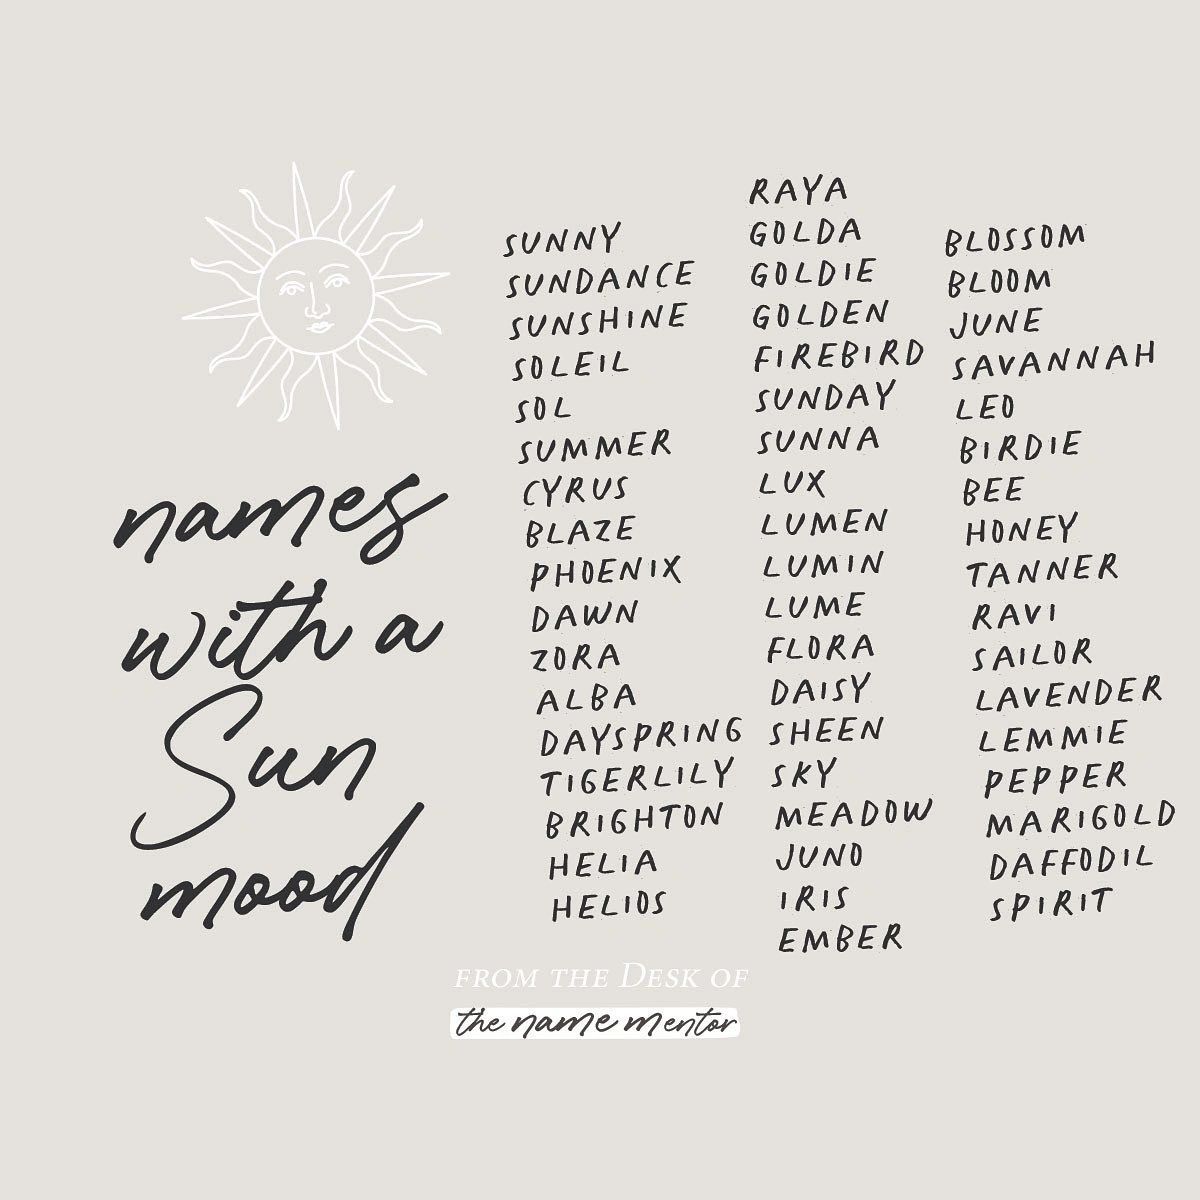 names
with a
Sun
mood
SUNNY
SUNDANCE
SUNSHINE
SOLEIL
SOL
SUMMER
CYRUS
BLAZE
PHOENIX
DAWN
ZORA
ALBA
DAYSPRING
TIGERLILY
BRIGHTON
HELIA
HELIOS
RAYA
GOLDA
GOLDIE
GOLDEN
FIREBIRD
SUNDAY
SUNNA
LUX
LUMEN
LUMIN
LUME
FLORA
DAISY
SHEEN
SKY
MEADOW
JUNO
IRIS
EMBER
BLOSSOM
BLOOM
JUNE
SAVANNAH
LEO
BIRDIE
BEE
HONEY
TANNER
RAVI
SAILOR
LAVENDER
LEMMIE
PEPPER
MARIGOLD
DAFFODIL
SPIRIT
FROM THE DESK OF
the name mentor